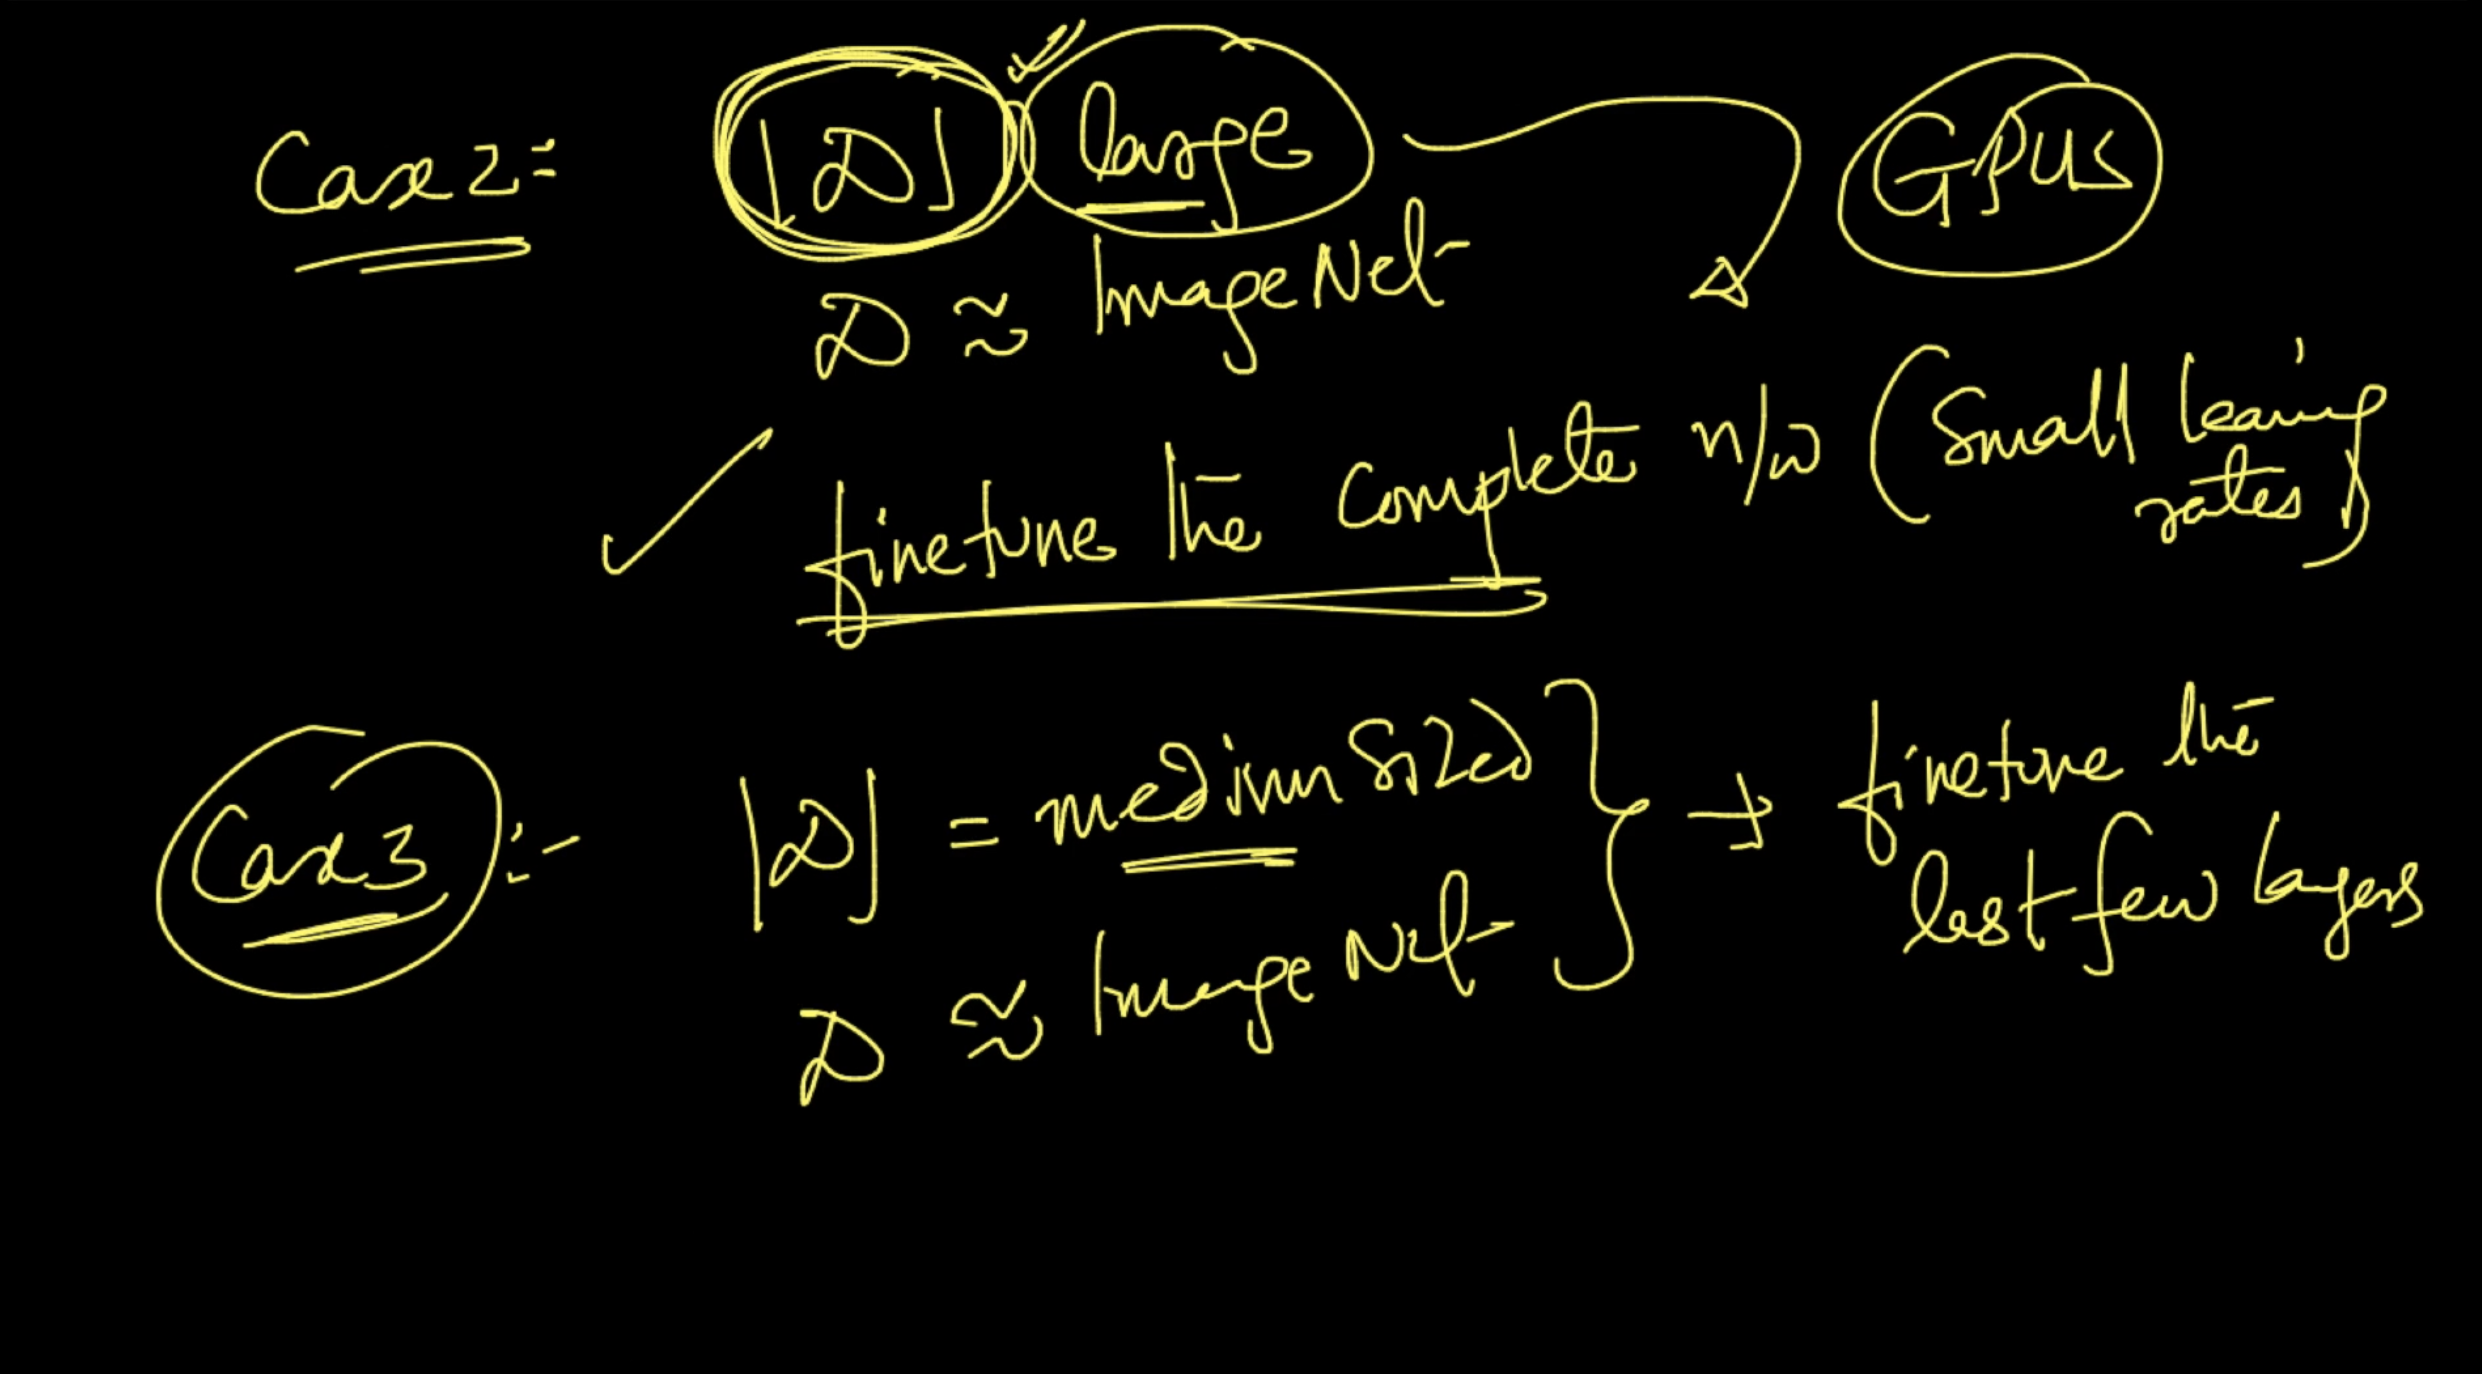 Case 2:
|D| large GPUs
D ≈ ImageNet
finetune the complete n/w (small learning rates)
Case 3 :-
|D| = medium sized } → finetune the last few layers
D ≈ ImageNet